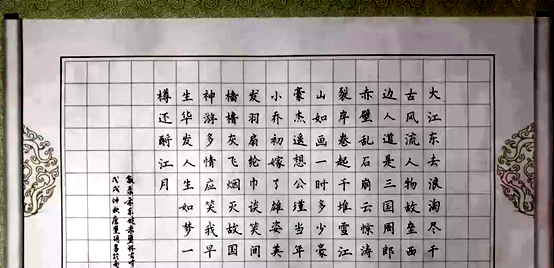 大江东去浪淘尽千
古风流人物故垒西
边人道是三国周郎
赤壁乱石崩云惊涛
裂岸卷起千堆雪江
山如画一时多少豪
豪杰遥想公瑾当年
小乔初嫁了雄姿英
发羽扇纶巾谈笑间
樯橹灰飞烟灭故国
神游多情应笑我早
生华发人生如梦一
樽还酹江月
敬录苏东坡
戊戌仲秋